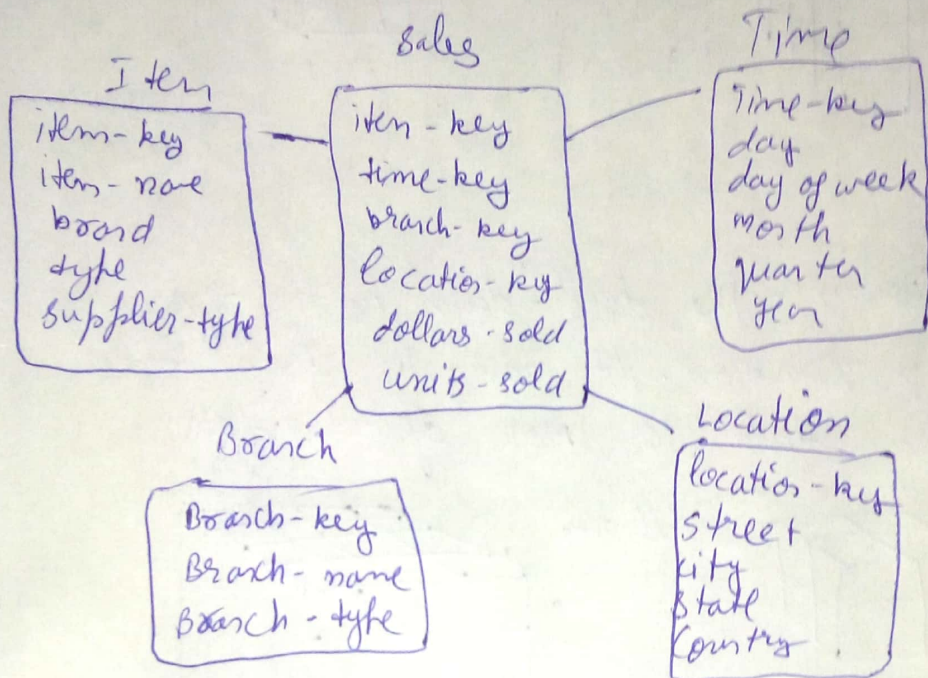 Item
item-key
item-name
brand
type
supplier-type
Sales
item-key
time-key
branch-key
location-key
dollars-sold
units-sold
Time
Time-key
day
day of week
month
quarter
year
Branch
Branch-key
Branch-name
Branch-type
Location
location-key
Street
City
State
Country